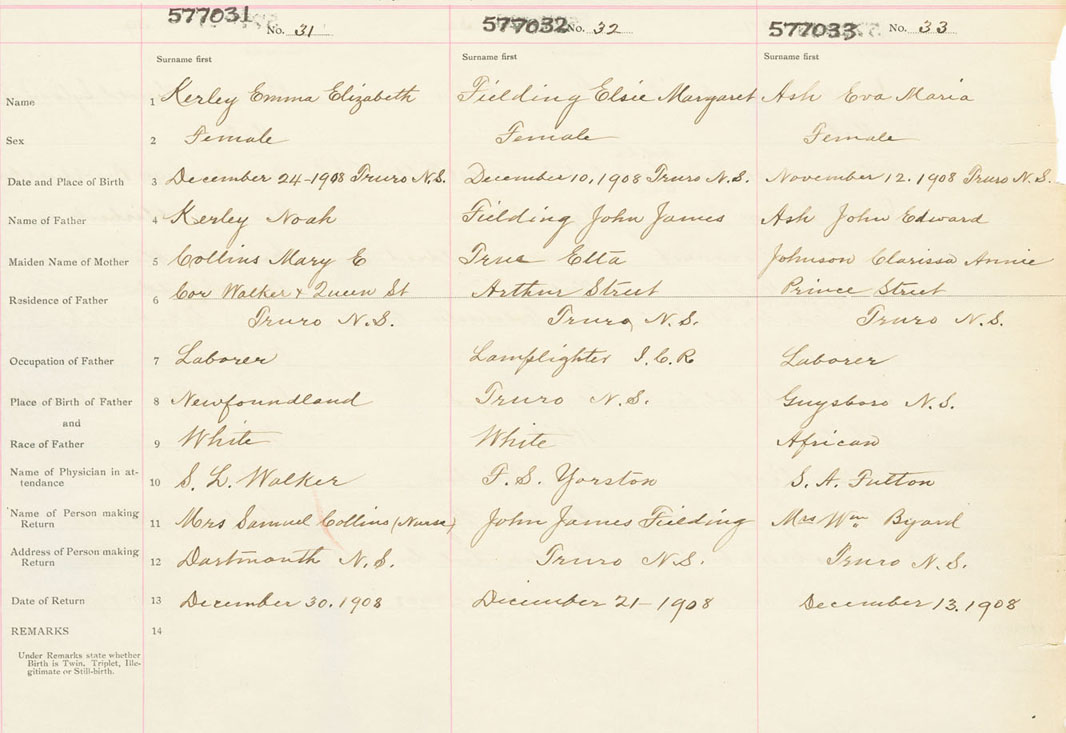 577031 No. 31 577032 No. 32 577033 No. 33
Surname first Surname first Surname first
Name 1 Kerley Emma Elizabeth Fielding Elsie Margaret Ash Eva Maria
Sex 2 Female Female Female
Date and Place of Birth 3 December 24-1908 Truro N.S. December 10, 1908 Truro N.S. November 12. 1908 Truro N.S.
Name of Father 4 Kerley Noah Fielding John James Ash John Edward
Maiden Name of Mother 5 Collins Mary E True Etta Johnson Clarissa Annie
Residence of Father 6 Cor Walker & Queen St Arthur Street Prince Street
Truro N.S. Truro N.S. Truro N.S.
Occupation of Father 7 Laborer Lamplighter I.C.R Laborer
Place of Birth of Father 8 Newfoundland Truro N.S. Guysboro N.S.
and
Race of Father 9 White White African
Name of Physician in at-
tendance 10 S. L. Walker F. S. Yorston S. A. Fulton
Name of Person making
Return 11 Mrs Samuel Collins (Nurse) John James Fielding Mrs Wm Byard
Address of Person making
Return 12 Dartmouth N.S. Truro N.S. Truro N.S.
Date of Return 13 December 30. 1908 December 21-1908 December 13. 1908
REMARKS 14
Under Remarks state whether
Birth is Twin, Triplet, Ille-
gitimate or Still-birth.